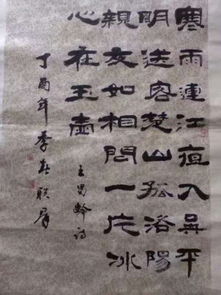 寒雨連江夜入吳平
明送客楚山孤洛陽
親友如相問一片冰
心在玉壺
王昌齡詩
丁酉年季春联辱